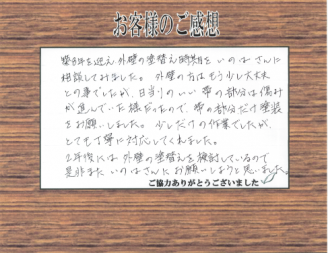 お客様のご感想
築8年を迎え外壁の塗替え時期をいのはさんに
相談してみました。 外壁の方はもう少し大丈夫
との事でしたが、日当りのいい帯の部分は傷み
が進んでいた様だったので、帯の部分だけ塗装
をお願いしました。少しだけの作業でしたが
とても丁寧に対応してくれました。
2年後には外壁の塗替えを検討しているので
是非またいのはさんにお願いしようと思いました。
ご協力ありがとうございました